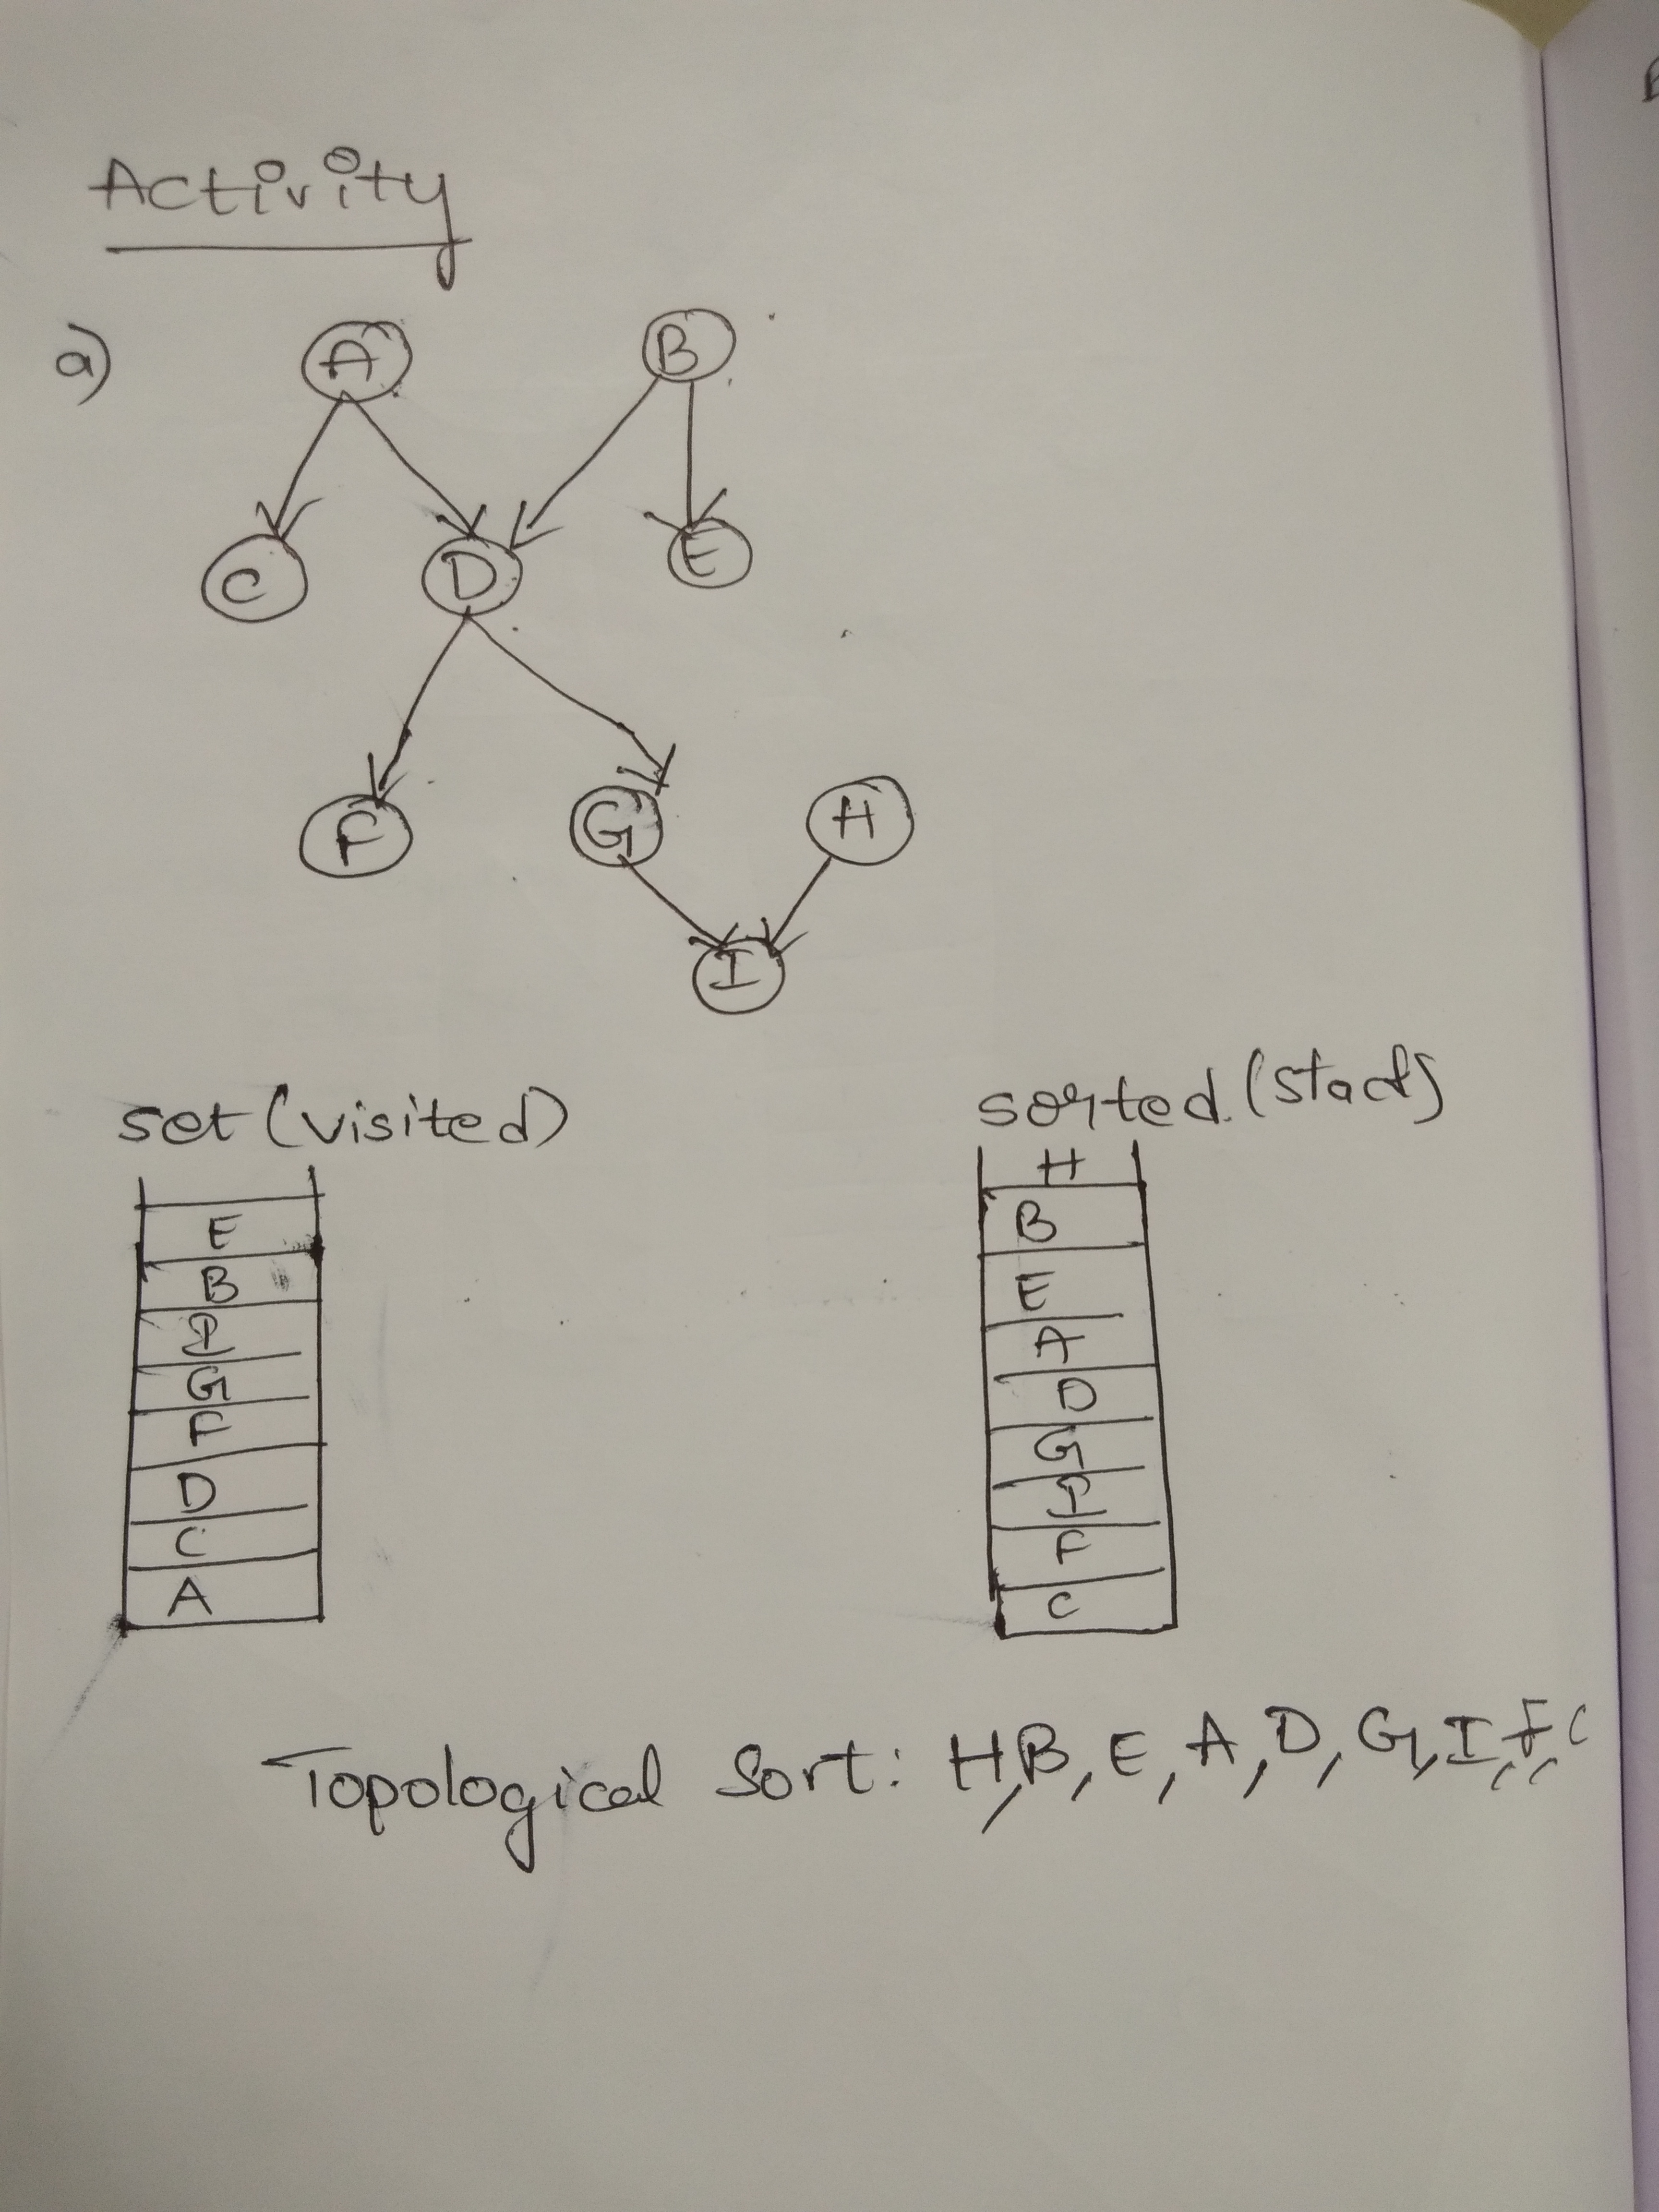 Activity
a) A B
C D E
F G H
I
set (visited) sorted (stack)
H
E B
B E
I A
G D
F G
D I
C F
A C
Topological Sort: H, B, E, A, D, G, I, F, C